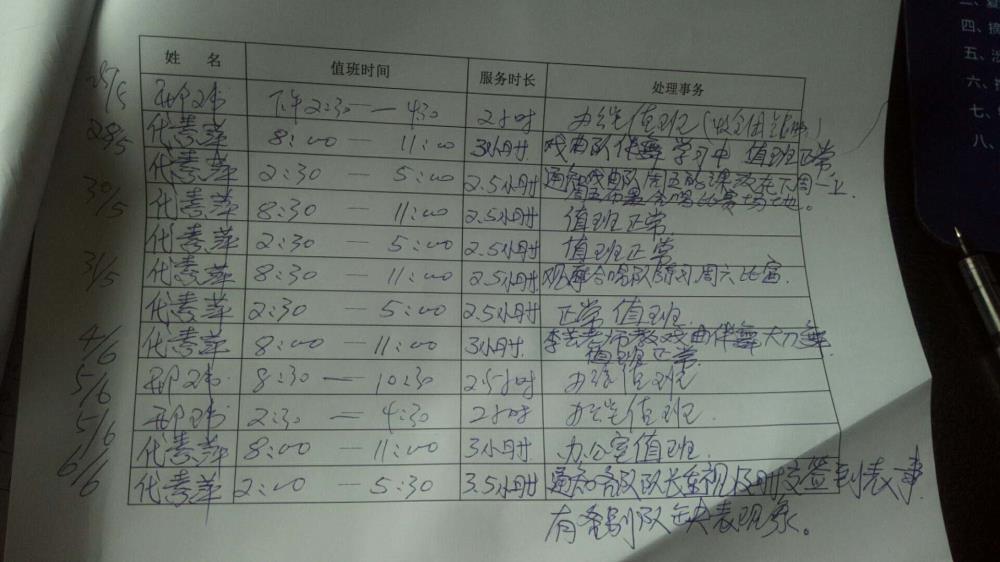 姓 名 值班时间 服务时长 处理事务
25/5 下午2:30—4:30 2小时 办公室值班
28/5 代素萍 8:00—11:00 3小时 戏曲队伴舞学习中 值班正常
代素萍 2:30—5:00 2.5小时 通知戏曲队周五的课放在下周一上
周五布置合唱比赛场地。
30/5 代素萍 8:30—11:00 2.5小时 值班正常
代素萍 2:30—5:00 2.5小时 值班正常
31/5 代素萍 8:30—11:00 2.5小时 观摩合唱队练习周六比赛.
代素萍 2:30—5:00 2.5小时 正常值班
4/6 代素萍 8:00—11:00 3小时 李芸老师教戏曲伴舞大刀舞
值班正常
5/6 8:30—10:30 2.5小时 办公室值班
5/6 2:30—4:30 2小时 办公室值班.
6/6 代素萍 8:00—11:00 3小时 办公室值班
代素萍 2:00—5:30 3.5小时 通知各队队长重视及时交签到表事
有个别队缺表现象。
四、
五、
六、
七、
八、